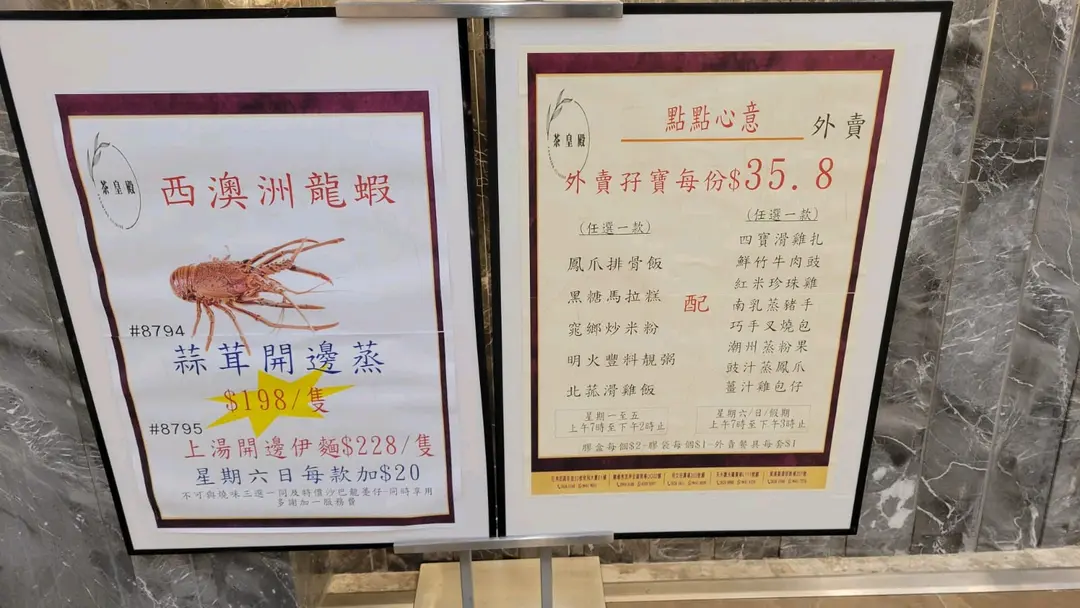 茶皇殿
西澳洲龍蝦
#8794
蒜茸開邊蒸
$198/隻
#8795
上湯開邊伊麵$228/隻
星期六日每款加$20
不可與燒味三選一同及特價沙巴龍躉仔同時享用
多謝加一服務費
茶皇殿
點點心意
外賣
外賣孖寶每份$35.8
(任選一款)
鳳爪排骨飯
黑糖馬拉糕
窕鄉炒米粉
明火豐料靚粥
北菰滑雞飯
配
(任選一款)
四寶滑雞扎
鮮竹牛肉豉
紅米珍珠雞
南乳蒸豬手
巧手叉燒包
潮州蒸粉果
豉汁蒸鳳爪
薑汁雞包仔
星期一至五
上午7時至下午2時止
星期六/日/假期
上午7時至下午3時止
膠盒每個$2-膠袋每個$1-外賣餐具每套$1